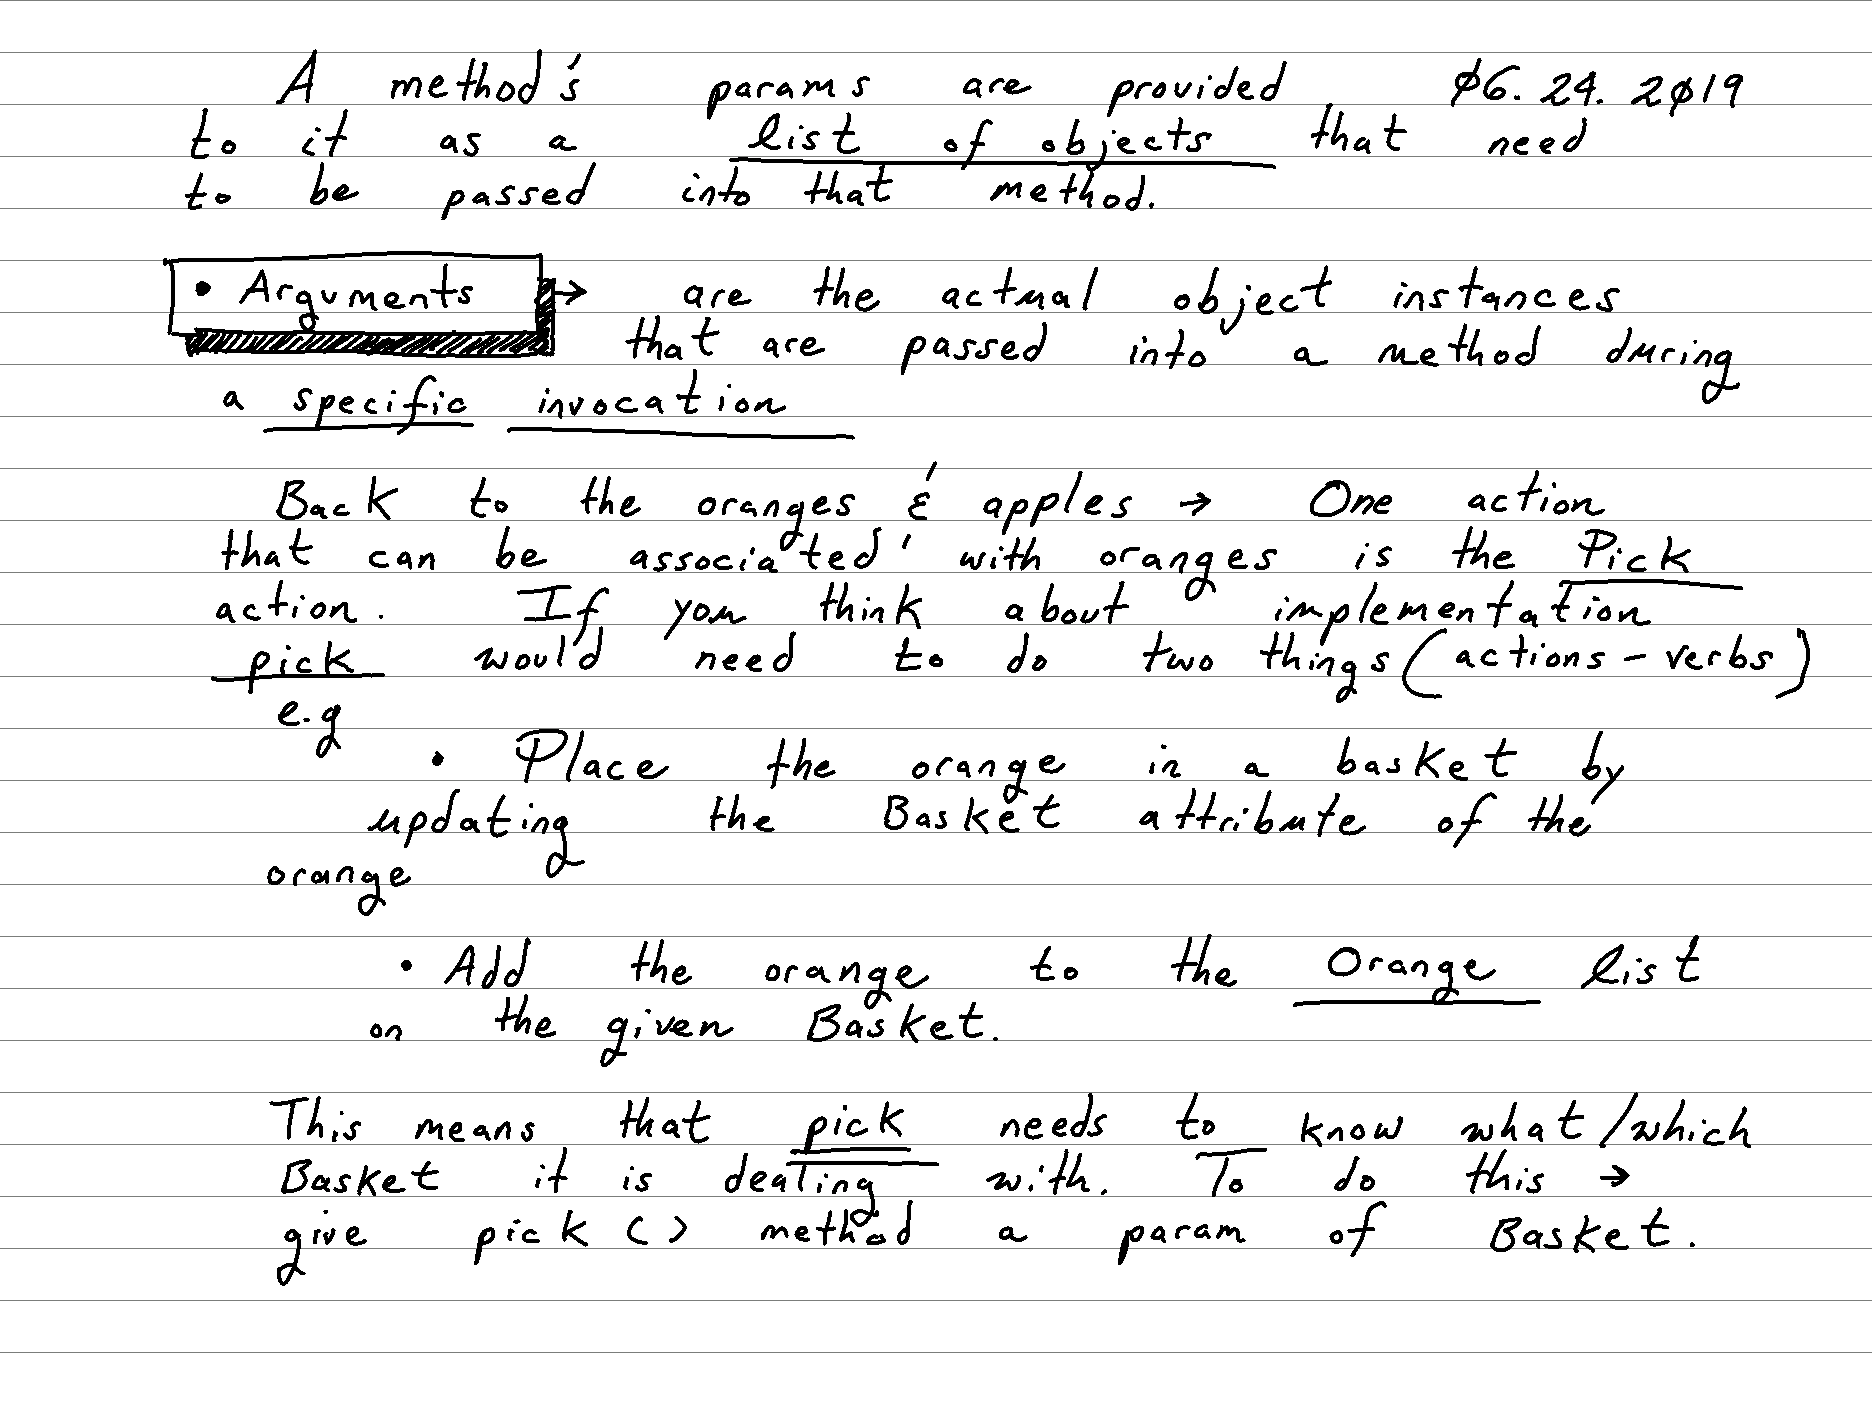 A method's params are provided ø6.24.2ø19
to it as a list of objects that need
to be passed into that method.
• Arguments → are the actual object instances
that are passed into a method during
a specific invocation
Back to the oranges & apples → One action
that can be associated with oranges is the Pick
action. If you think about implementation
pick would need to do two things (actions - verbs)
e.g
• Place the orange in a basket by
updating the Basket attribute of the
orange
• Add the orange to the Orange list
on the given Basket.
This means that pick needs to know what/which
Basket it is dealing with. To do this →
give pick () method a param of Basket.